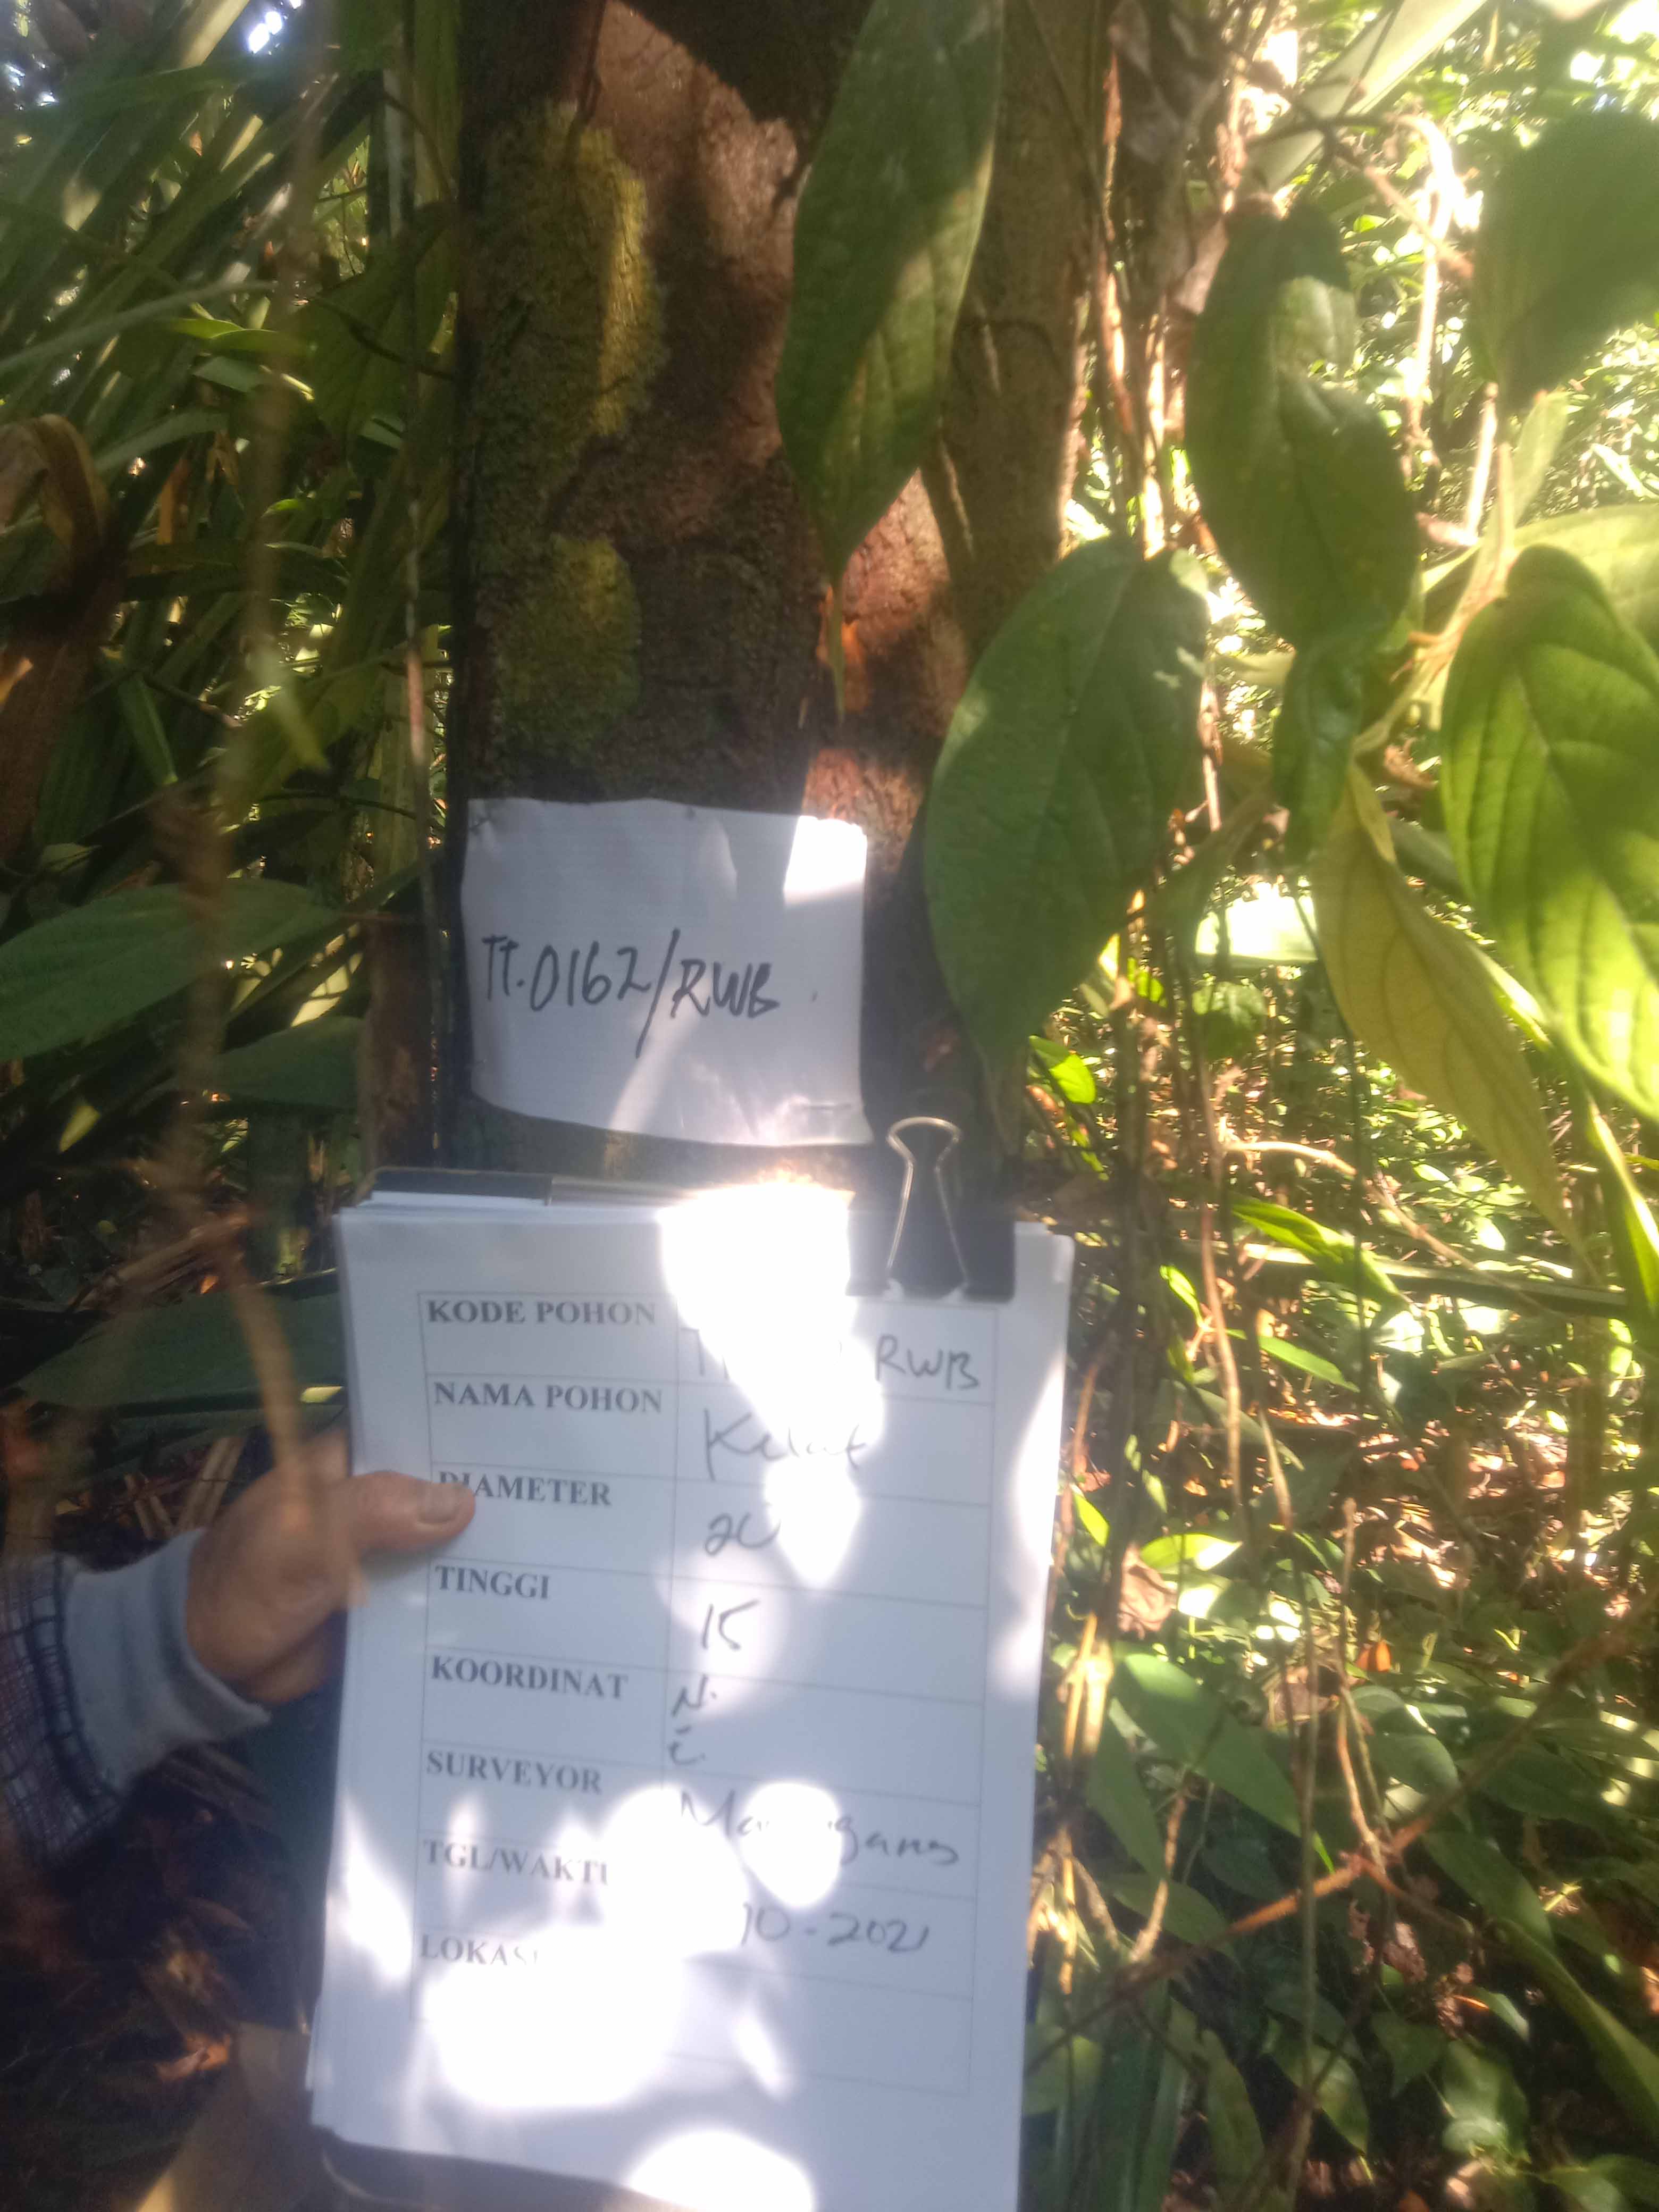 TT.0162/RWB
KODE POHON RWB
NAMA POHON Kelat
DIAMETER 20
TINGGI 15
KOORDINAT N:
E:
SURVEYOR
TGL/WAKTU 10-2021
LOKASI